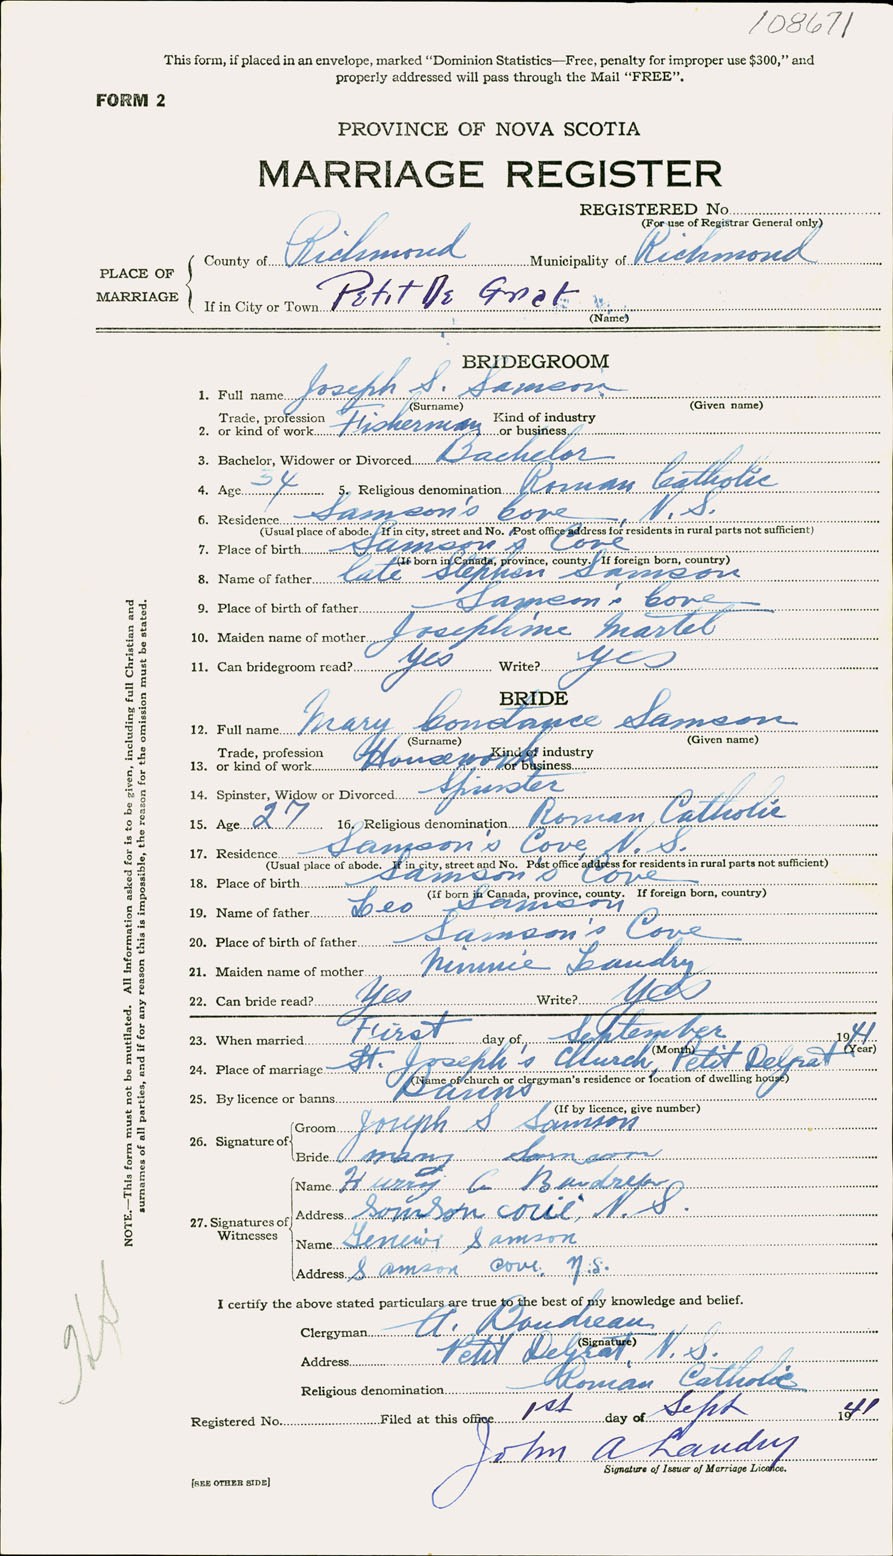 108671
This form, if placed in an envelope, marked "Dominion Statistics—Free, penalty for improper use $300," and
properly addressed will pass through the Mail "FREE".
FORM 2
PROVINCE OF NOVA SCOTIA
MARRIAGE REGISTER
REGISTERED No.
(For use of Registrar General only)
PLACE OF MARRIAGE
County of Richmond Municipality of Richmond
If in City or Town Petit De Grat
(Name)
BRIDEGROOM
1. Full name Joseph S. Samson
(Surname) (Given name)
2. Trade, profession or kind of work Fisherman Kind of industry or business
3. Bachelor, Widower or Divorced Bachelor
4. Age 34 5. Religious denomination Roman Catholic
6. Residence Samson's Cove, N.S.
(Usual place of abode. If in city, street and No. Post office address for residents in rural parts not sufficient)
7. Place of birth Samson's Cove
(If born in Canada, province, county. If foreign born, country)
8. Name of father late Stephen Samson
9. Place of birth of father Samson's Cove
10. Maiden name of mother Josephine Martel
11. Can bridegroom read? Yes Write? Yes
BRIDE
12. Full name Mary Constance Samson
(Surname) (Given name)
13. Trade, profession or kind of work Housework Kind of industry or business
14. Spinster, Widow or Divorced Spinster
15. Age 27 16. Religious denomination Roman Catholic
17. Residence Samson's Cove, N.S.
(Usual place of abode. If in city, street and No. Post office address for residents in rural parts not sufficient)
18. Place of birth Samson's Cove
(If born in Canada, province, county. If foreign born, country)
19. Name of father Leo Samson
20. Place of birth of father Samson's Cove
21. Maiden name of mother Minnie Landry
22. Can bride read? Yes Write? Yes
23. When married First day of September 1941
(Month) (Year)
24. Place of marriage St. Joseph's Church, Petit Degrat
(Name of church or clergyman's residence or location of dwelling house)
25. By licence or banns Banns
(If by licence, give number)
26. Signature of
Groom Joseph S Samson
Bride Mary Samson
27. Signatures of Witnesses
Name Harry A Boudreau
Address Samson cove, N.S.
Name Samson
Address Samson Cove, N.S.
I certify the above stated particulars are true to the best of my knowledge and belief.
Clergyman A. Boudreau
(Signature)
Address Petit Degrat, N.S.
Religious denomination Roman Catholic
Registered No. Filed at this office 1st day of Sept 1941
John A Landry
Signature of Issuer of Marriage Licence.
[SEE OTHER SIDE]
NOTE.—This form must not be mutilated. All information asked for is to be given, including full Christian and
surnames of all parties, and if for any reason this is impossible, the reason for the omission must be stated.